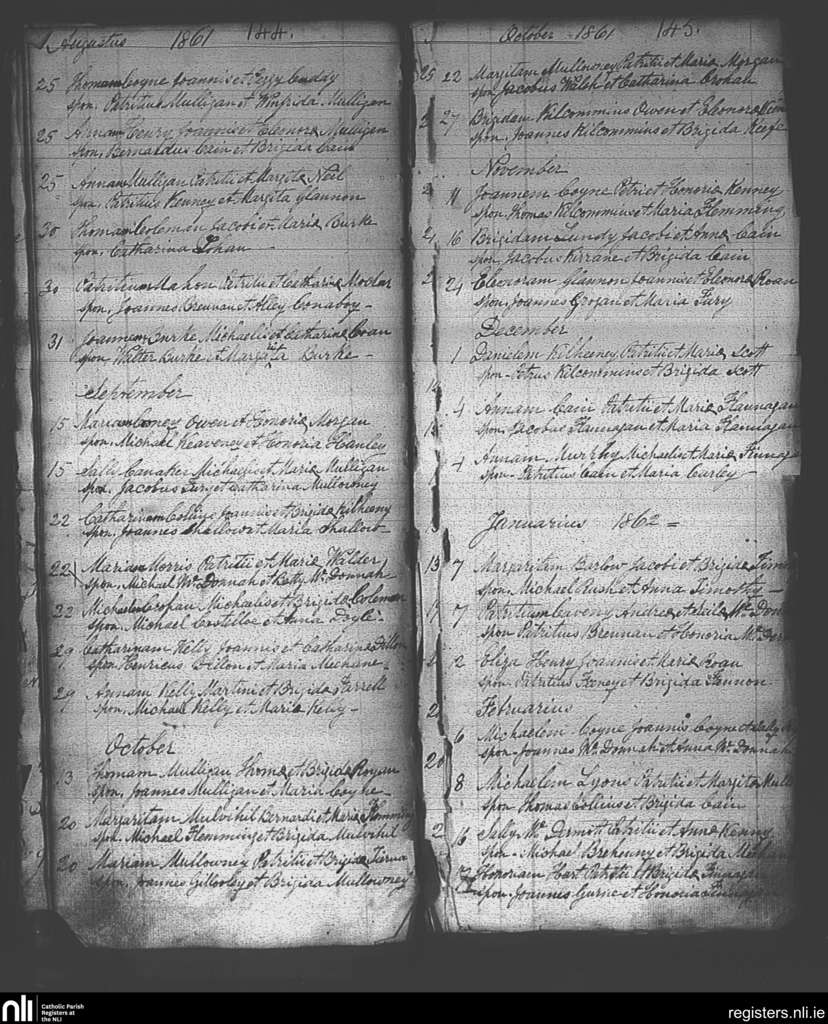 Augustus 1861 144.
25 Thomam Coyne Joannis et Peggy
spon. Patritius Mulligan et Winifrida Mulligan
25 Henry Joannis et Eleonora Mulligan
spon. Bernardus Cain et Brigida Cain
25 Annam Mulligan Patritii et Margita Neil
spon. Patritius Kenney et Margita Glannon
30 Thomam Colemen Jacobi et Maria Burke
spon. Catharina Lohan
30 Patritium Mahon Patritii et Catharina
spon. Joannes Brennan et Alley Conaboy -
31 Joannem Burke Michaelis et Catharina Coan
spon. Walter Burke et Margrita Burke -
September
15 Mariam Cooney Owen et Honoria Morgan
spon. Michael Keaveney et Honoria Hanley
15 Michaelis et Maria Mulligan
spon. Jacobus et Catharina Mullowney
22 Catharinam Collins Joannis et Brigida Kilkenny
spon. Joannes Shallow et Maria Shallow-
22 Mariam Morris Patritii et Maria Walder
spon. Michael Mc Donnah et Catty Mc Donnah
22 Michaelem Crohan Michaelis et Brigida Coleman
spon. Michael Costelloe et Anna Doyle-
29 Catharinam Kelly Joannis et Catharina Dillon
spon. Henricus Dillon et Maria Meehane-
29 Annam Kelly Martini et Brigida Farrell
spon. Michael Kelly et Maria Kelly-
October
13 Thomam Mulligan Thoma et Brigida Rogan
spon. Joannes Mulligan et Maria Coyne-
20 Margaritam Mulvihil Bernardi et Maria Flemming
spon. Michael Flemming et Brigida Mulvihil
20 Mariam Mullowney Patritii et Brigida Tierna
spon. Joannes Gillooley et Brigida Mullowney
October 1861 145.
22 Margitam Mullowney Patritii et Maria Morgan
spon. Jacobus Walsh et Catharina Crohan
27 Brigidam Kilcommins Owen et Eleonora
spon. Joannes Kilcommins et Brigida Keefe
November
11 Joannem Coyne Petri et Honoria Kenney
spon. Thomas Kilcommins et Maria Flemming
16 Brigidam Lundy Jacobi et Anna Cain
spon. Jacobus Kirrane et Brigida Cain
24 Eleonoram Glannon Joannis et Eleonora Roan
spon. Joannes Grogan et Maria Fury
December
1 Danielem Kilheeney Patritii et Maria Scott
spon. Petrus Kilcommins et Brigida Scott
4 Annam Cain Patritii et Maria Flannagan
spon. Jacobus Flannagan et Maria Flannagan
4 Annam Murphy Michaelis et Maria
spon. Patritius Cain et Maria Carley -
Januarius 1862 =
7 Margaritam Barlow Jacobi et Brigida
spon. Michael Rush et Anna Timothy -
7 Patritium Caveny Andrea et Mc
spon Patritius Brennan et Honoria Mc
12 Eliza Henry Joannis et Maria Roan
spon. Patritius Feeney et Brigida Hannon.
Februarius
6 Michaelem Coyne Joannis Coyne et Sally
spon. Joannes Mc Donnah et Anna Mc Donnah
8 Michaelem Lyons Patritii et Margita
spon Thomas Collins et Brigida Cain
16 Sally Mc Dermott Patritii et Anna Kenny
spon. Michael Breheny et Brigida
17 Honoriam Hart Patritii et Brigida
spon. Joannes et Honoria
nli Catholic Parish
Registers at
the NLI
registers.nli.ie